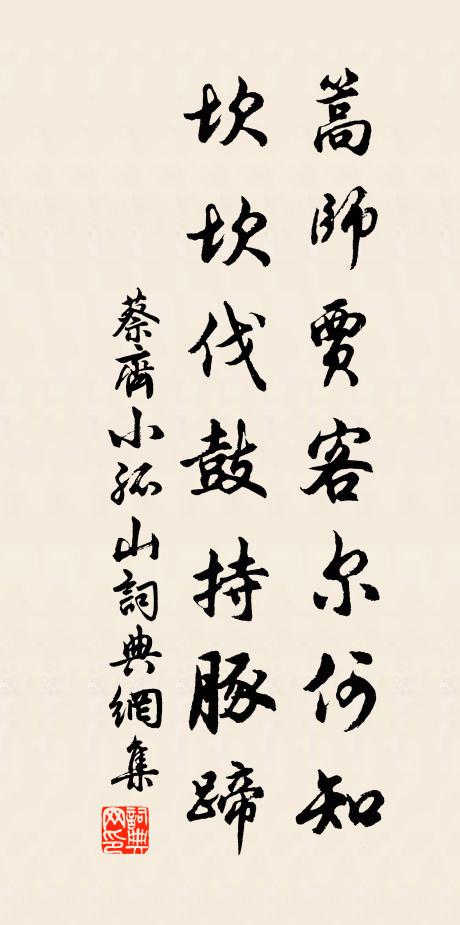 蒿師賈客尔何知
坎坎伐鼓持豚蹄
蔡齊小孤山詞典網集
詞典網印